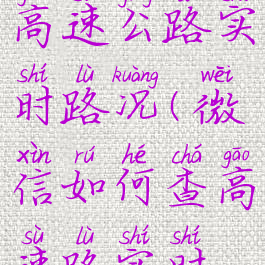 高速公路实
shí lù kuàng wēi
时路况(微
xìn rú hé chá gāo
信如何查高
sù lù shí shí
速路实时